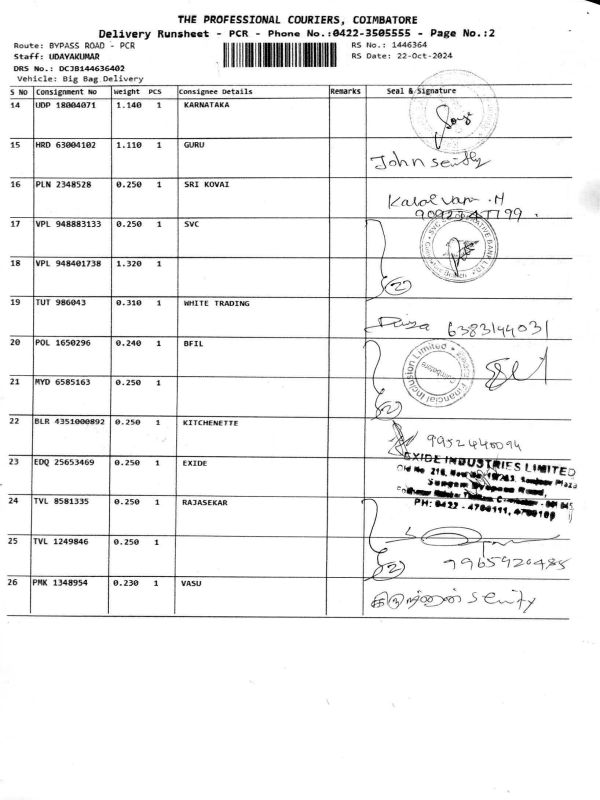 THE PROFESSIONAL COURIERS, COIMBATORE
Delivery Runsheet - PCR - Phone No.:0422-3505555 - Page No.:2
Route: BYPASS ROAD - PCR
RS No.: 1446364
Staff: UDAYAKUMAR
RS Date: 22-Oct-2024
DRS No.: DCJB144636402
Vehicle: Big Bag Delivery
S No Consignment No Weight PCS Consignee Details Remarks Seal & Signature
14 UDP 18004071 1.140 1 KARNATAKA
15 HRD 63004102 1.110 1 GURU
John
16 PLN 2348528 0.250 1 SRI KOVAI
17 VPL 948883133 0.250 1 SVC
18 VPL 948401738 1.320 1
(2)
19 TUT 986043 0.310 1 WHITE TRADING
6383144031
20 POL 1650296 0.240 1 BFIL
Financial Inclusion Limited
Coimbatore
21 MYD 6585163 0.250 1
(2)
22 BLR 4351000892 0.250 1 KITCHENETTE
9952440094
23 EDQ 25653469 0.250 1 EXIDE
EXIDE INDUSTRIES LIMITED
Old No 218,
Sungam Bypass Road,
PH: 0422 - 4700111, 4700100
24 TVL 8581335 0.250 1 RAJASEKAR
25 TVL 1249846 0.250 1
(2)
9965920485
26 PMK 1348954 0.230 1 VASU